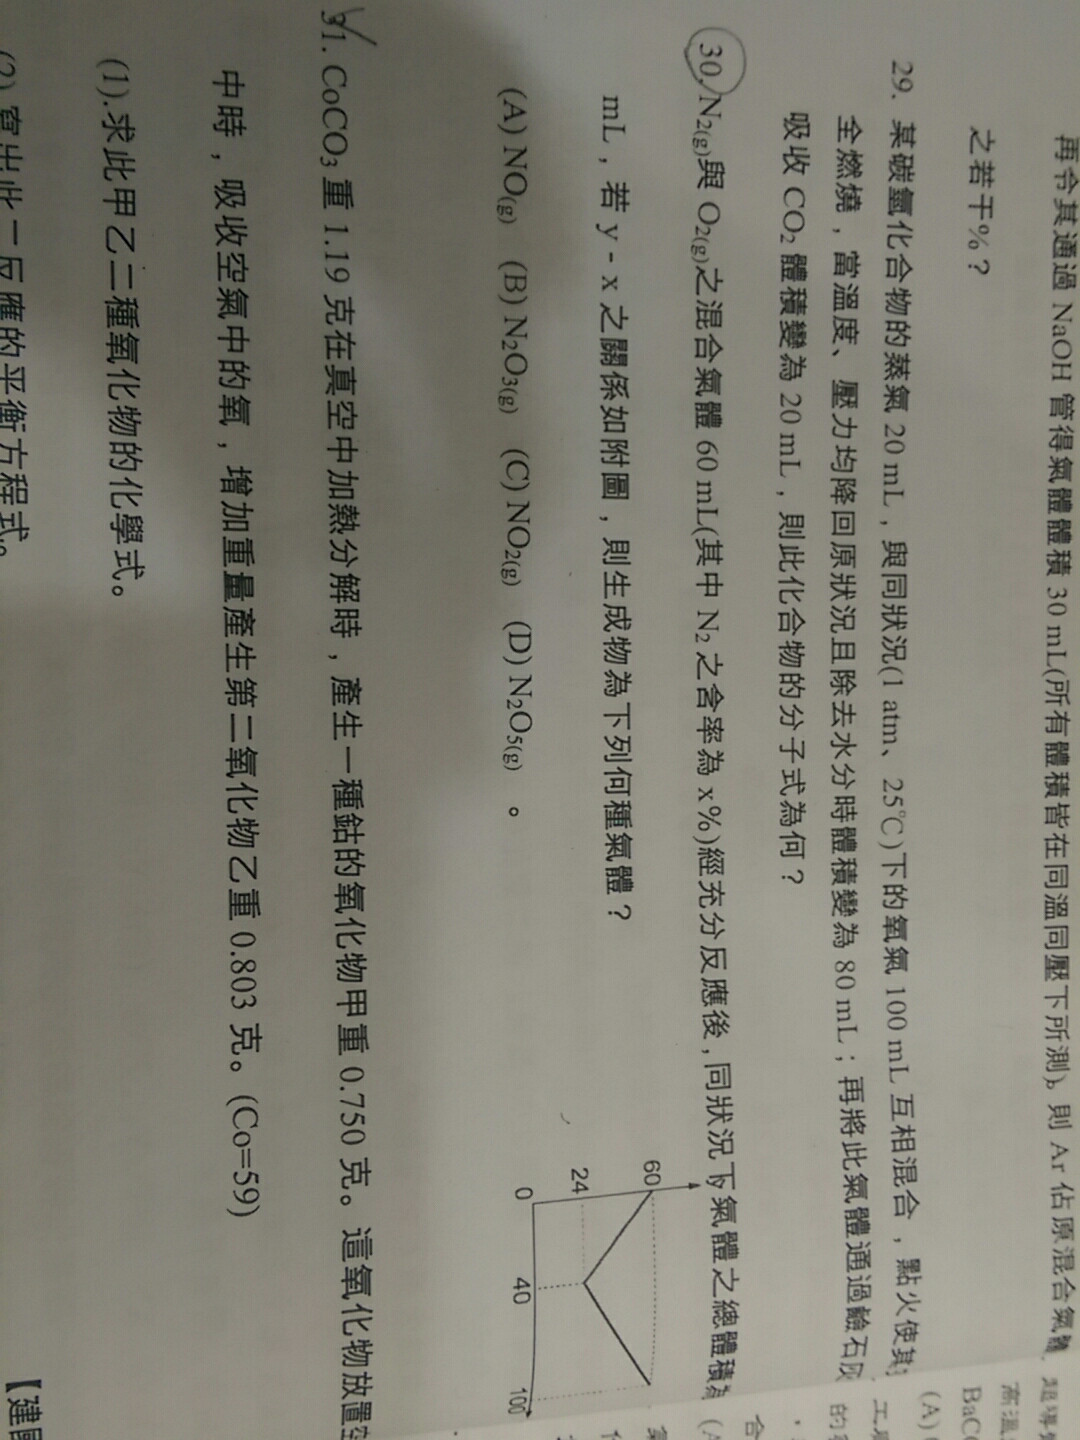 再令其通過 NaOH 管得氣體體積 30 mL(所有體積皆在同溫同壓下所測)。則 Ar 佔原混合氣體
之若干%？
29. 某碳氫化合物的蒸氣 20 mL，與同狀況(1 atm、25℃)下的氧氣 100 mL 互相混合，點火使其
全燃燒，當溫度、壓力均降回原狀況且除去水分時體積變為 80 mL；再將此氣體通過鹼石灰
吸收 CO2 體積變為 20 mL，則此化合物的分子式為何？
30. N2(g)與 O2(g)之混合氣體 60 mL(其中 N2 之含率為 x%)經充分反應後，同狀況下氣體之總體積為
mL，若 y - x 之關係如附圖，則生成物為下列何種氣體？
(A) NO(g) (B) N2O3(g) (C) NO2(g) (D) N2O5(g) 。
y
60
24
0
40
100
31. CoCO3 重 1.19 克在真空中加熱分解時，產生一種鈷的氧化物甲重 0.750 克。這氧化物放置空
中時，吸收空氣中的氧，增加重量產生第二氧化物乙重 0.803 克。(Co=59)
(1).求此甲乙二種氧化物的化學式。
(2).寫出此二反應的平衡方程式。
【建國
超導
高溫
BaC
(A)
工
的
合
(A